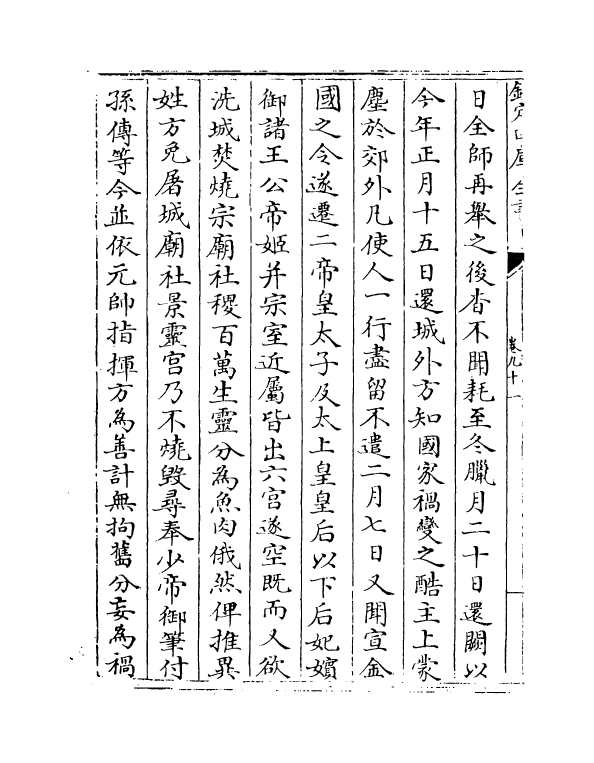 日全師再舉之後杳不聞耗至冬臘月二十日還闕以
今年正月十五日還城外方知國家禍變之酷主上蒙
塵於郊外凡使人一行盡留不遣二月七日又聞宣金
國之令遂遷二帝皇太子及太上皇皇后以下后妃嬪
御諸王公帝姬并宗室近屬皆出六宫遂空既而又欲
洗城焚燒宗廟社稷百萬生靈分為魚肉俄然俾推異
姓方免屠城廟社景靈宫乃不燒毀尋奉少帝御筆付
孫傳等今並依元帥指揮方為善計無拘舊分妄為禍
卷九十一